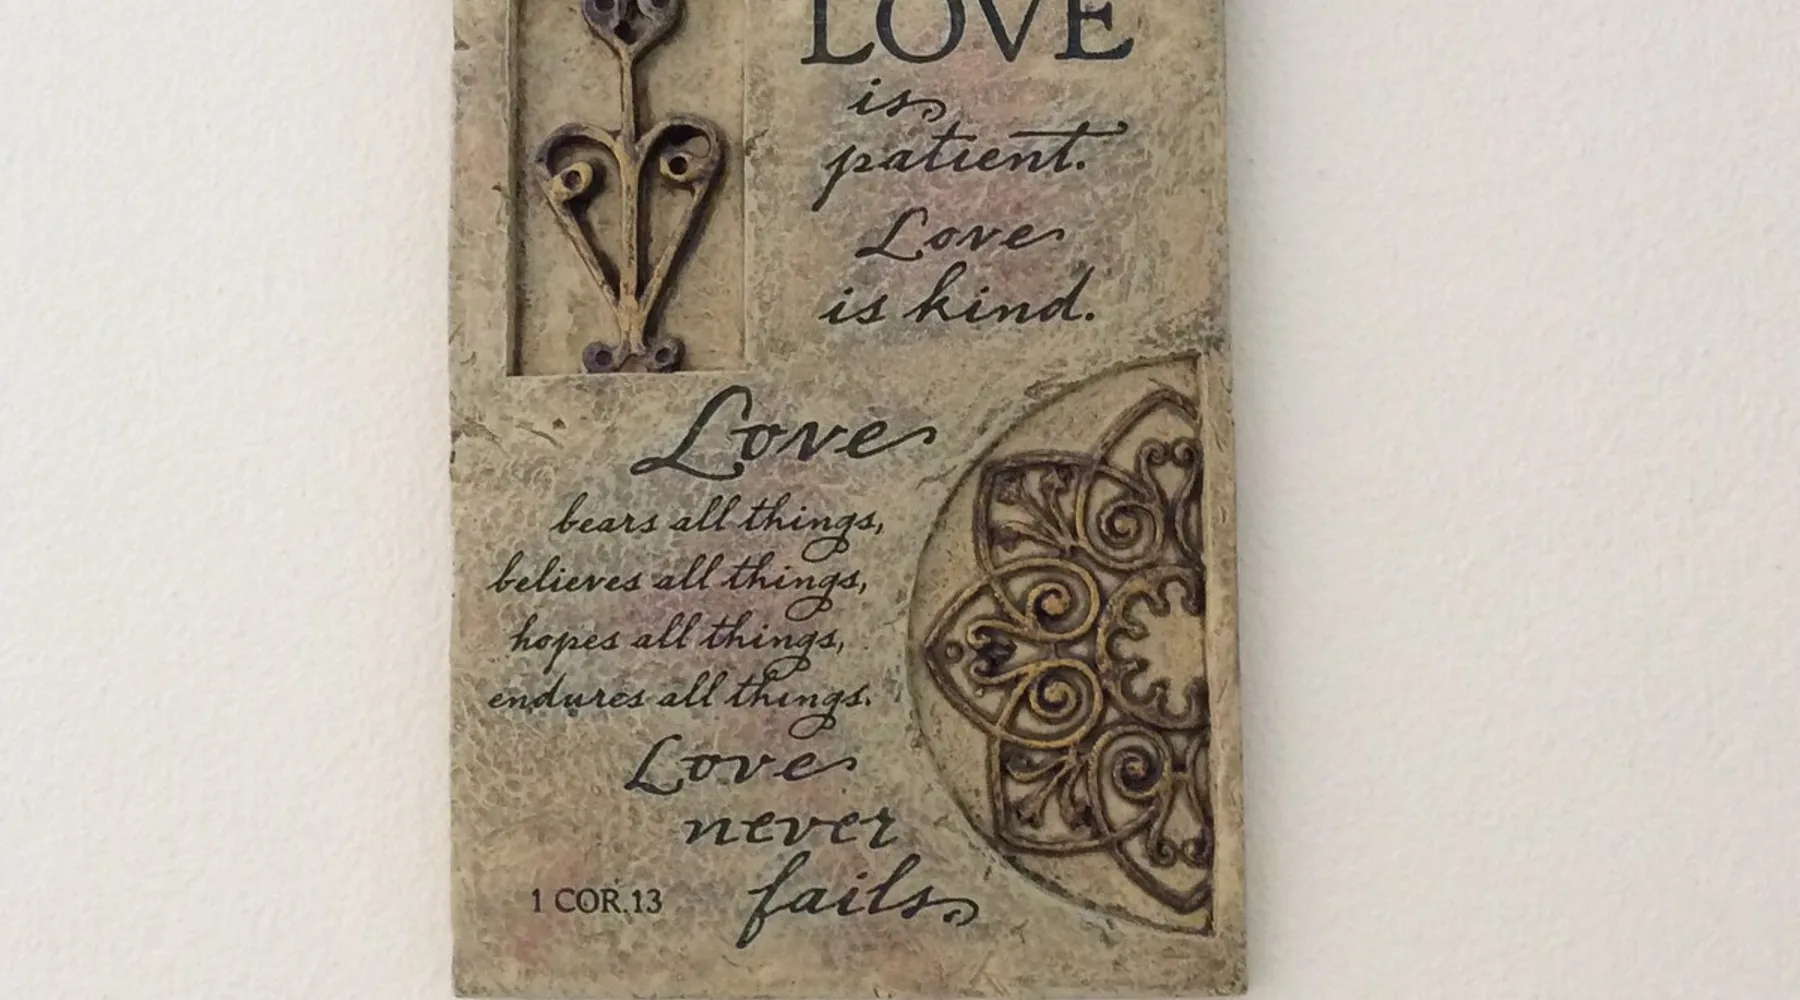 LOVE
is
patient.
Love
is kind.
Love
bears all things,
believes all things,
hopes all things,
endures all things.
Love
never
fails
1 COR.13